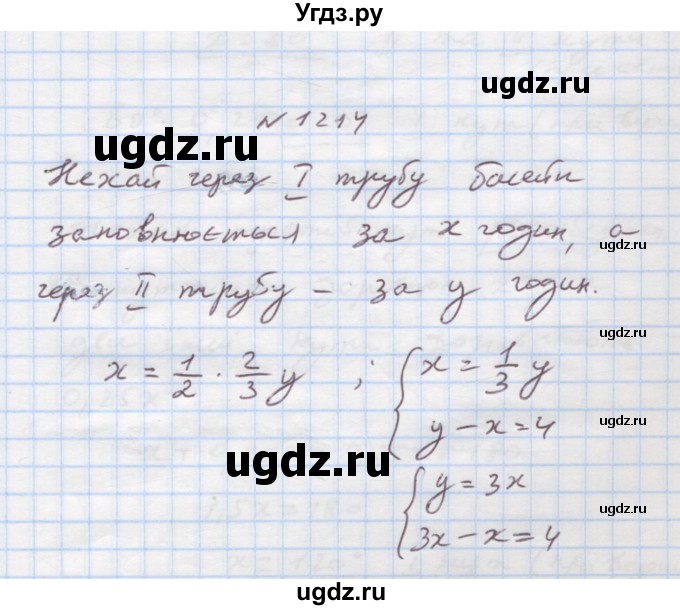 Угдз.ру
ugdz.ru
№ 1214
ugdz.ru
Нехай через I трубу басейн
заповнюється за x годин, а
ugdz.ru
через II трубу – за y годин.
ugdz.ru
x = 1/2 · 2/3 y ; { x = 1/3 y
y – x = 4
ugdz.ru
ugdz.ru
{ y = 3x
ugdz.ru
3x – x = 4
ugdz.ru